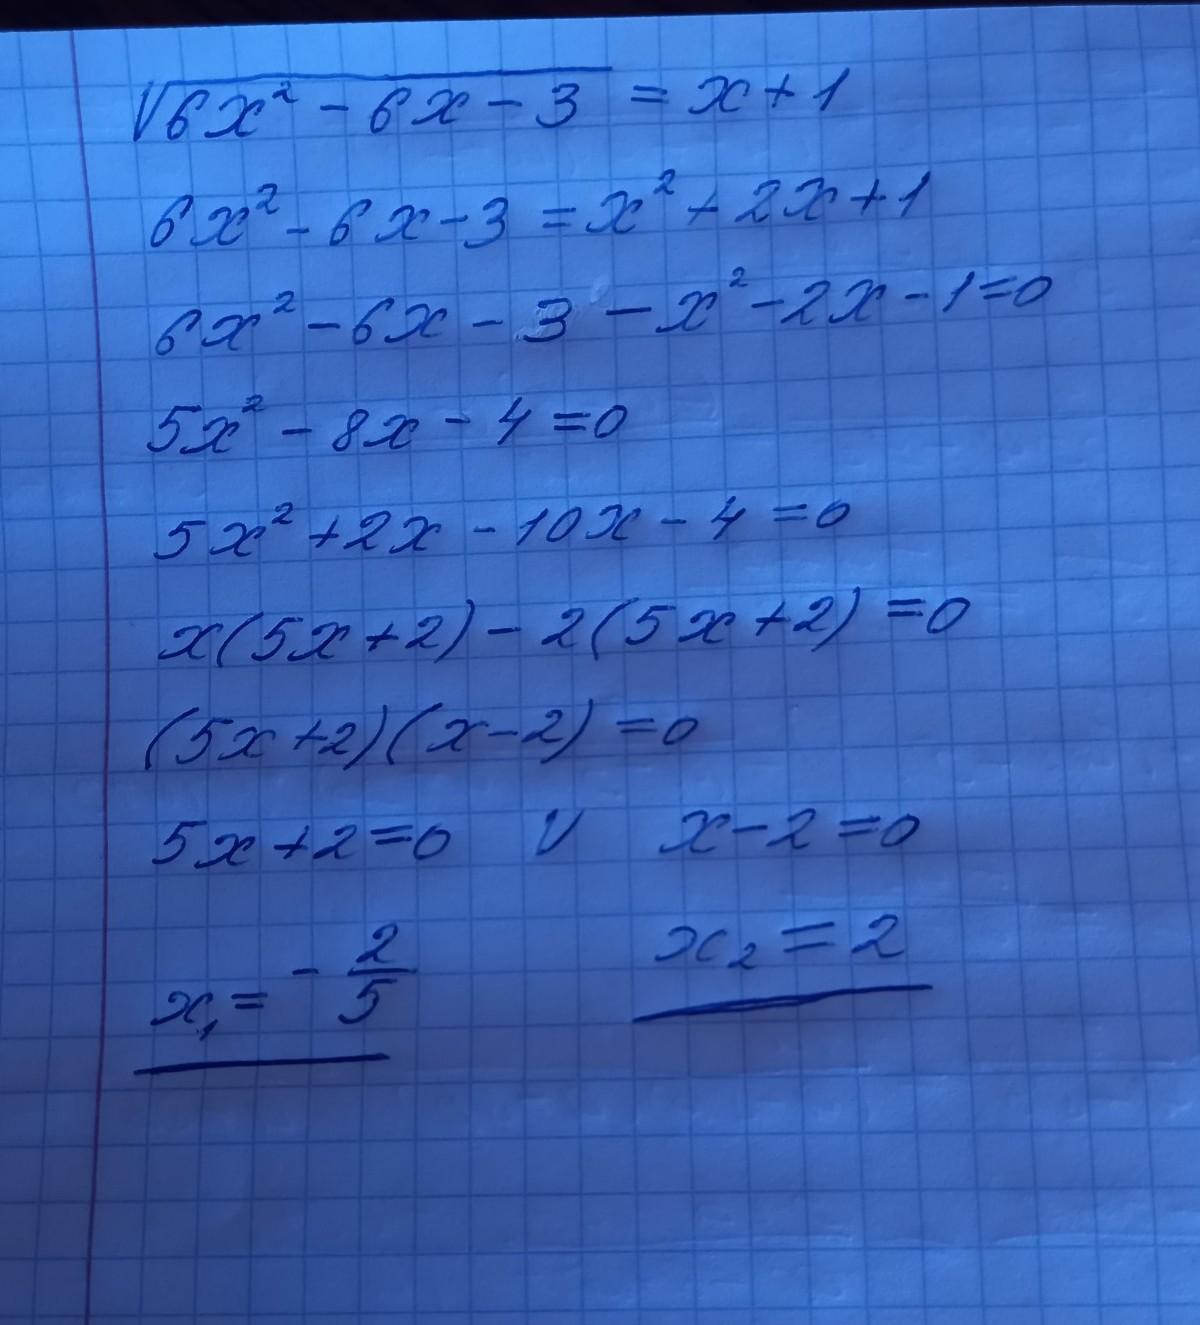 √6x² - 6x - 3 = x + 1
6x² - 6x - 3 = x² + 2x + 1
6x² - 6x - 3 - x² - 2x - 1 = 0
5x² - 8x - 4 = 0
5x² + 2x - 10x - 4 = 0
x(5x + 2) - 2(5x + 2) = 0
(5x + 2)(x - 2) = 0
5x + 2 = 0 V x - 2 = 0
x₁ = - 2/5 x₂ = 2